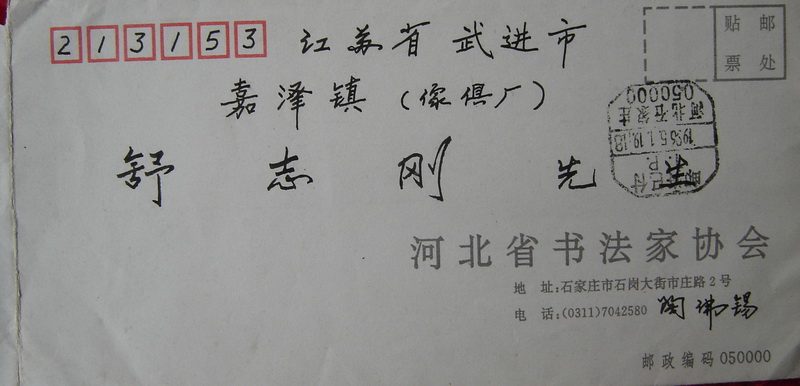 213153 江苏省武进市
嘉泽镇（傢俱厂）
舒志刚先生
贴邮
票处
河北石家庄
050000
邮资已付
P.P.
河北省书法家协会
地 址:石家庄市石岗大街市庄路2号
电 话:(0311)7042580 陶沸锡
邮政编码050000